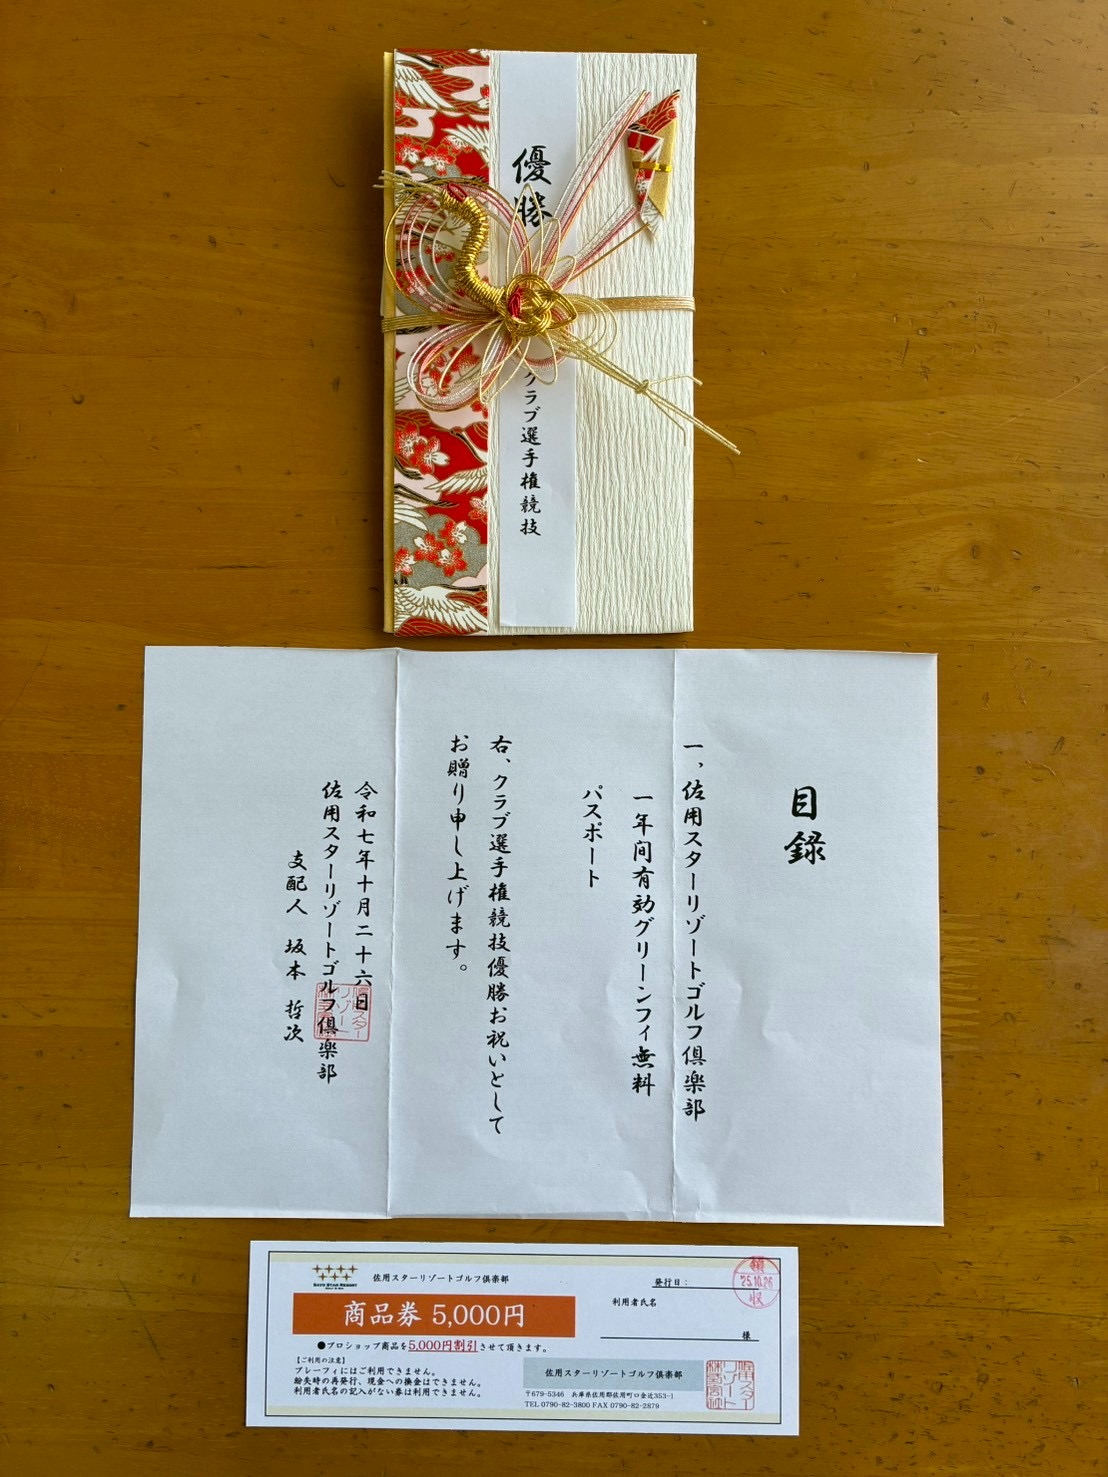 優勝
クラブ選手権競技
目録
一、佐用スターリゾートゴルフ倶楽部
一年間有効グリーンフィ無料
パスポート
右、クラブ選手権競技優勝お祝いとして
お贈り申し上げます。
令和七年十月二十六日
佐用スターリゾートゴルフ倶楽部
支配人 坂本 哲次
佐用スター
リゾート
株式会社
SAYO STAR RESORT
佐用スターリゾートゴルフ倶楽部
商品券 5,000円
●プロショップ商品を5,000円割引させて頂きます。
【ご利用の注意】
プレーフィにはご利用できません。
紛失時の再発行、現金への換金はできません。
利用者氏名の記入がない券は利用できません。
発行日:
領
'25.10.26
収
利用者氏名
様
佐用スターリゾートゴルフ倶楽部
〒679-5346 兵庫県佐用郡佐用町口金近353-1
TEL 0790-82-3800 FAX 0790-82-2879
佐用スター
リゾート
株式会社